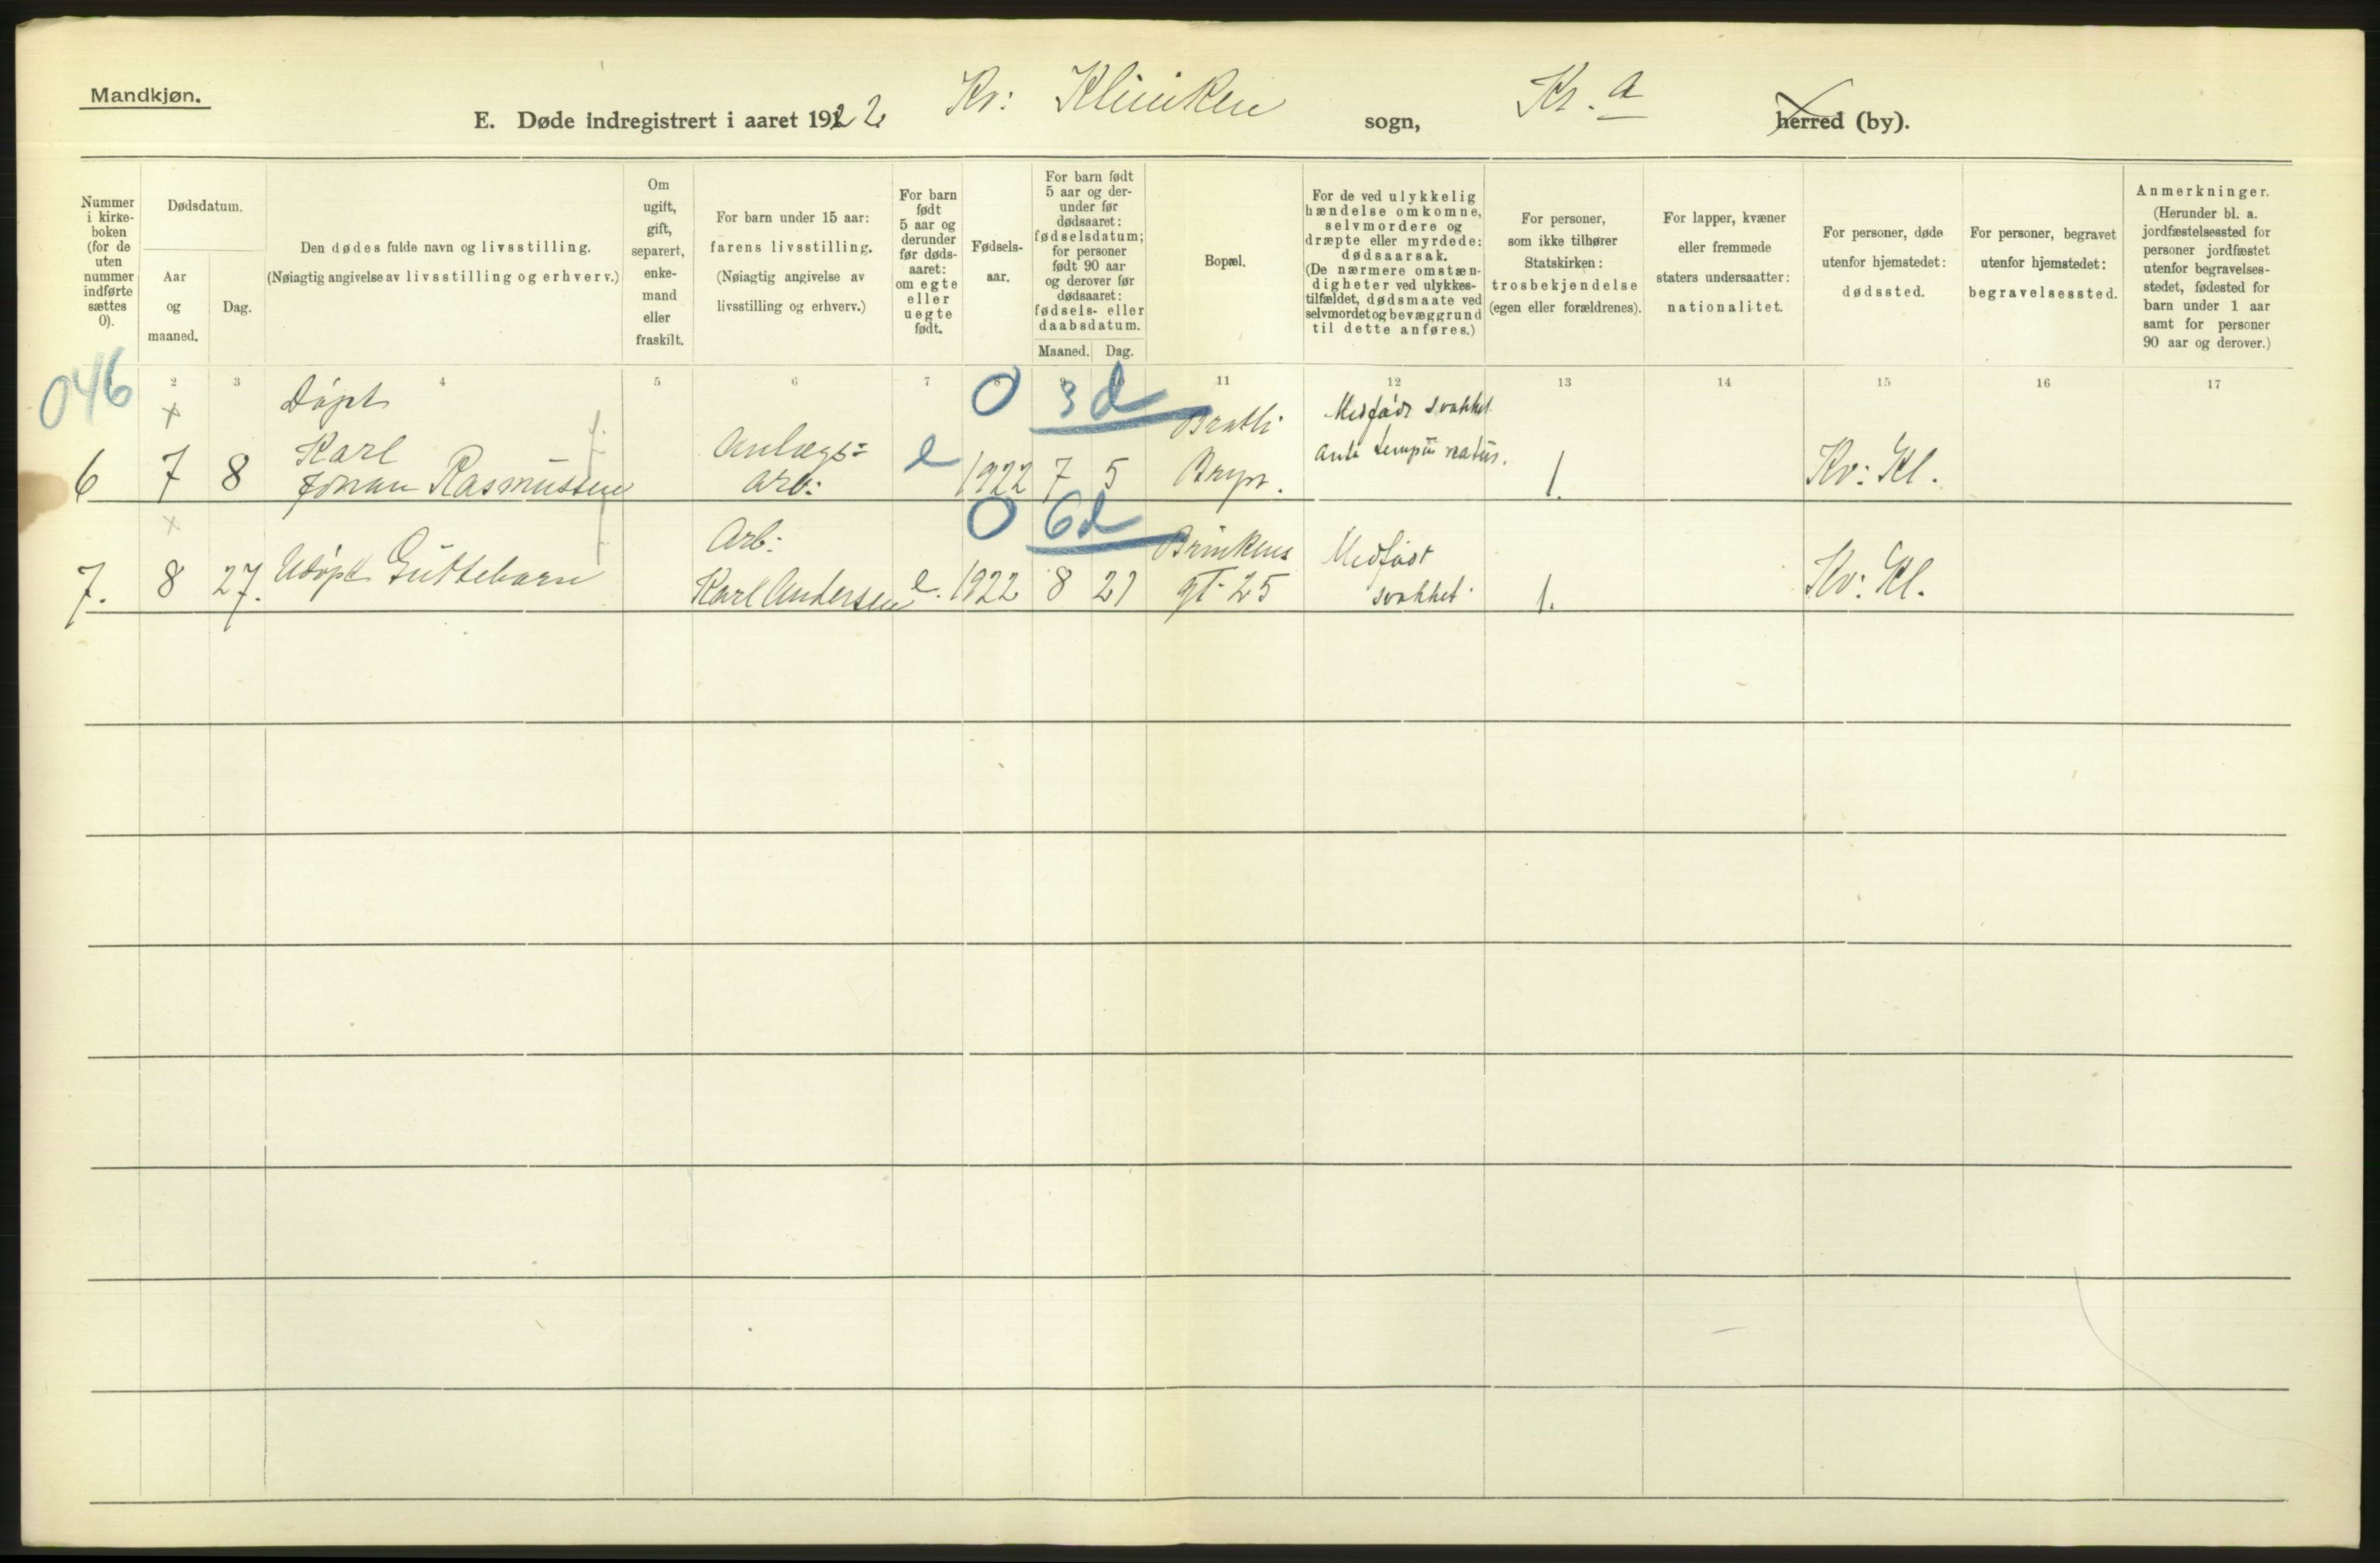 Mandkjøn.
E. Døde indregistrert i aaret 1922 Kv: Kliniken sogn, Kr.a herred (by).
Nummer i kirkeboken (for de uten nummer indførte sættes 0).
Dødsdatum.
Aar og maaned.
Dag.
Den dødes fulde navn og livsstilling.
(Nøiagtig angivelse av livsstilling og erhverv.)
Om ugift, gift, separert, enkemand eller fraskilt.
For barn under 15 aar:
farens livsstilling.
(Nøiagtig angivelse av livsstilling og erhverv.)
For barn født 5 aar og derunder før dødsaaret: om egte eller uegte født.
Fødselsaar.
For barn født 5 aar og derunder før dødsaaret: fødselsdatum; for personer født 90 aar og derover før dødsaaret: fødsels- eller daabsdatum.
Maaned. Dag.
Bopæl.
For de ved ulykkelig hændelse omkomne, selvmordere og dræpte eller myrdede: dødsaarsak.
(De nærmere omstændigheter ved ulykkestilfældet, dødsmaate ved selvmordet og bevæggrund til dette anføres.)
For personer, som ikke tilhører Statskirken: trosbekjendelse (egen eller forældrenes).
For lapper, kvæner eller fremmede staters undersaatter: nationalitet.
For personer, døde utenfor hjemstedet: dødssted.
For personer, begravet utenfor hjemstedet: begravelsessted.
Anmerkninger.
(Herunder bl. a. jordfæstelsessted for personer jordfæstet utenfor begravelsesstedet, fødested for barn under 1 aar samt for personer 90 aar og derover.)
046
2 3 4 5 6 7 11 12 13 14 15 16 17
Døpt 0 3 d Bratli Medfødt svakhet
Karl Anlægs= e ante
6 7 8 Johan Rasmussen Arb: 1922 7 5 Bryn. 1. Kv: Kl.
0 6d
Arb: Brinkens Medfødt
7. 8 27. Udøpt Guttebarn Karl Andersen e. 1922 8 21 gt. 25 svakhet. 1. Kv: Kl.